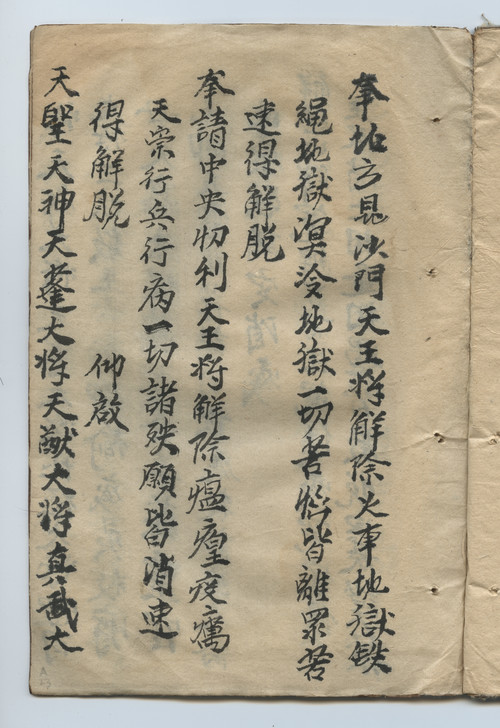 奉北方昆沙門天王將解除火車地獄鉄
繩地獄溟冷地獄一切苦惱皆離眾苦
速得解脫
奉請中央忉利天王將解除瘟瘟疫癘
天宗行兵行病一切諸殃願皆消速
得解脫 仰啟
天聖天神天蓬大將天猷大將真武大